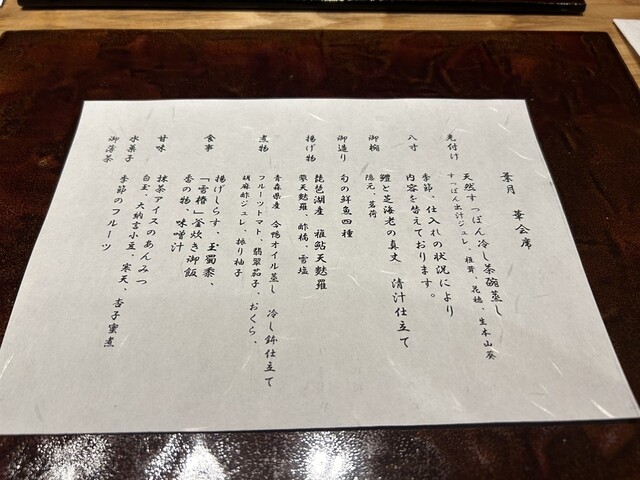 葉月 華会席
先付け 天然すっぽん冷し茶碗蒸し
すっぽん出汁ジュレ、椎茸、花穂、生本山葵
八寸 季節、仕入れの状況により
内容を替えております。
御椀 鱧と芝海老の真丈 清汁仕立て
隠元、茗荷
御造り 旬の鮮魚四種
揚げ物 琵琶湖産 稚鮎天麩羅
蓼天麩羅、酢橘、雪塩
煮物 青森県産 合鴨オイル蒸し 冷し鉢仕立て
フルーツトマト、翡翠茄子、おくら、
胡麻酢ジュレ、振り柚子
食事 揚げしらす、玉蜀黍、
「雪椿」釜炊き御飯
香の物、味噌汁
甘味 抹茶アイスのあんみつ
白玉、大納言小豆、寒天、杏子蜜煮
水菓子 季節のフルーツ
御薄茶